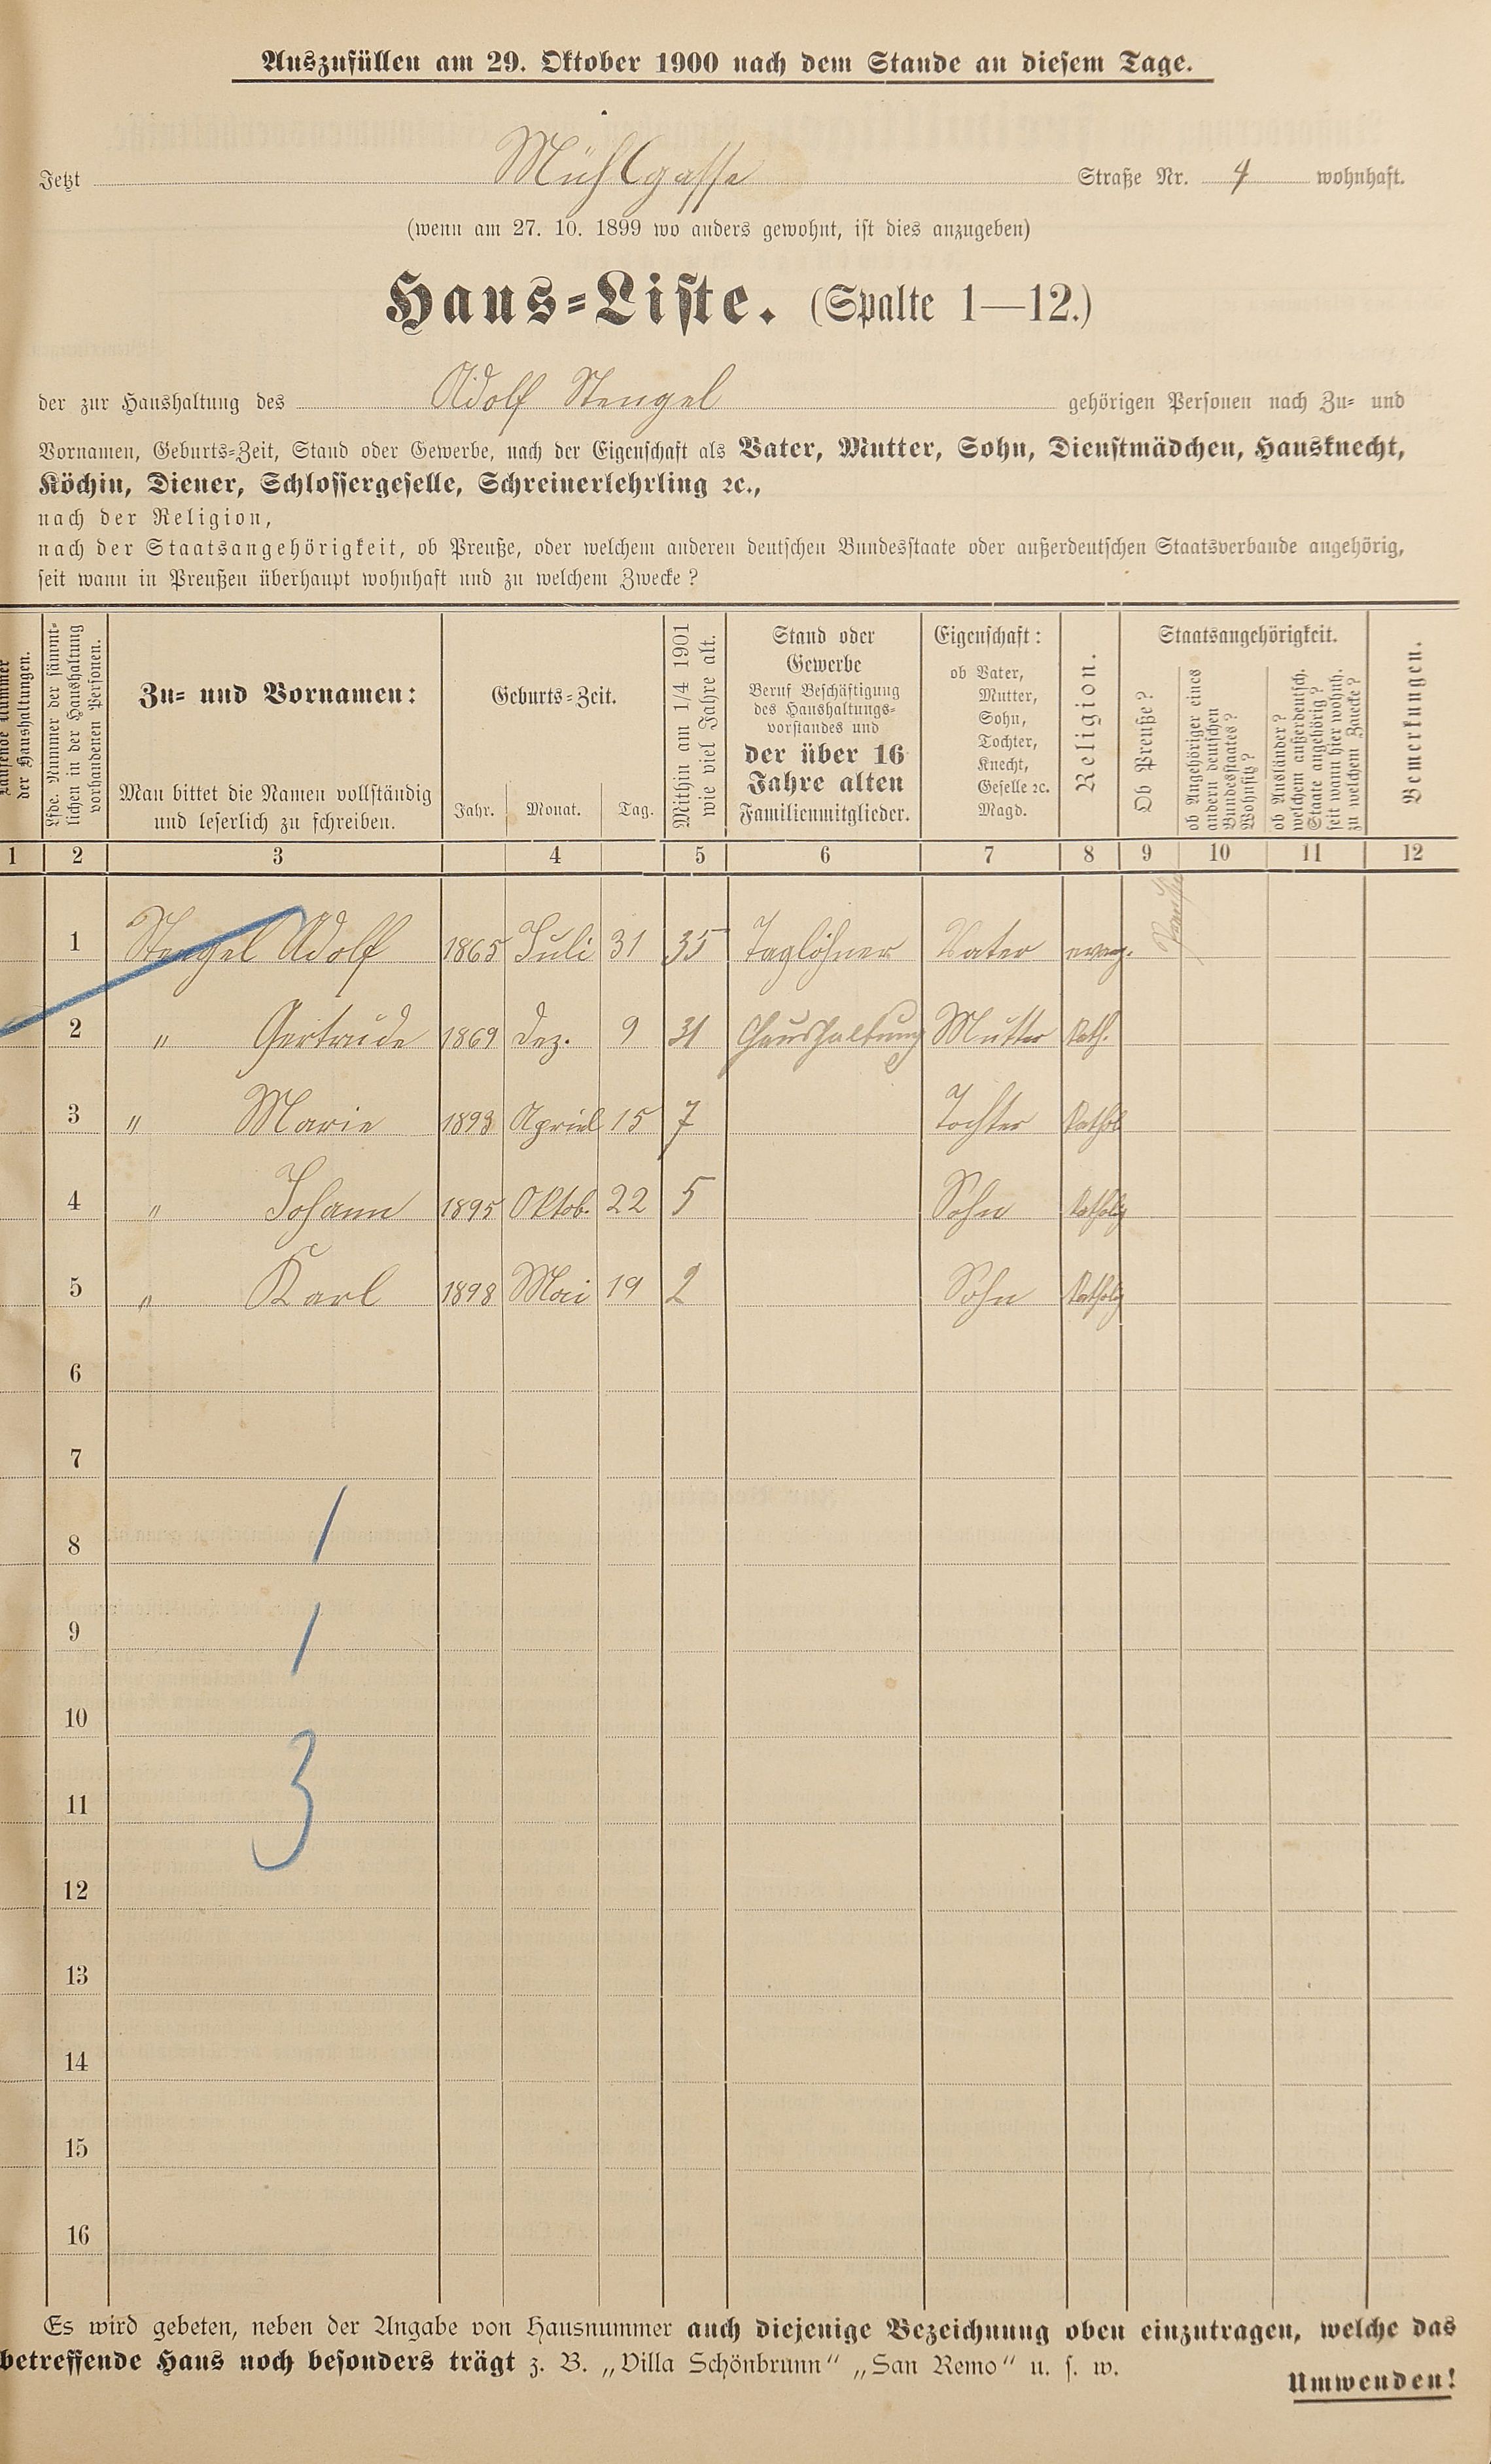 Auszufüllen am 29. Oktober 1900 nach dem Stande an diesem Tage.
Jetzt Mühlgasse Straße Nr. 4 wohnhaft.
(wenn am 27. 10. 1899 wo anders gewohnt, ist dies anzugeben)
Haus-Liste. (Spalte 1—12.)
der zur Haushaltung des Adolf Stengel gehörigen Personen nach Zu- und
Vornamen, Geburts-Zeit, Stand oder Gewerbe, nach der Eigenschaft als Vater, Mutter, Sohn, Dienstmädchen, Hausknecht,
Köchin, Diener, Schlossergeselle, Schreinerlehrling ꝛc.,
nach der Religion,
nach der Staatsangehörigkeit, ob Preuße, oder welchem anderen deutschen Bundesstaate oder außerdeutschen Staatsverbande angehörig,
seit wann in Preußen überhaupt wohnhaft und zu welchem Zwecke?
Laufende Nummer
der Haushaltungen.
Lfde. Nummer der sämmt-
lichen in der Haushaltung
vorhandenen Personen.
Zu- und Vornamen:
Man bittet die Namen vollständig
und leserlich zu schreiben.
Geburts-Zeit.
Jahr. Monat. Tag.
Mithin am 1/4 1901
wie viel Jahre alt.
Stand oder
Gewerbe
Beruf Beschäftigung
des Haushaltungs-
vorstandes und
der über 16
Jahre alten
Familienmitglieder.
Eigenschaft:
ob Vater,
Mutter,
Sohn,
Tochter,
Knecht,
Geselle ꝛc.
Magd.
Religion.
Staatsangehörigkeit.
Ob Preuße?
ob Angehöriger eines
andern deutschen
Bundesstaates?
Wohnsitz?
ob Ausländer?
welchem außerdeutsch.
Staate angehörig?
seit wann hier wohnh.
zu welchem Zwecke?
Bemerkungen.
1 2 3 4 5 6 7 8 9 10 11 12
1 Stengel Adolf 1865 Juli 31 35 Taglöhner Vater evang. Preuße
2 " Gertrude 1869 Dez. 9 31 Haushaltung Mutter Kath.
3 " Marie 1893 Apriel 15 7 Tochter Kathol
4 " Johann 1895 Oktob. 22 5 Sohn Katholg
5 " Karl 1898 Mai 19 2 Sohn Katholg
6
7
8 1
9 1
10
11 3
12
13
14
15
16
Es wird gebeten, neben der Angabe von Hausnummer auch diejenige Bezeichnung oben einzutragen, welche das
betreffende Haus noch besonders trägt z. B. „Villa Schönbrunn" „San Remo" u. s. w.
Umwenden!